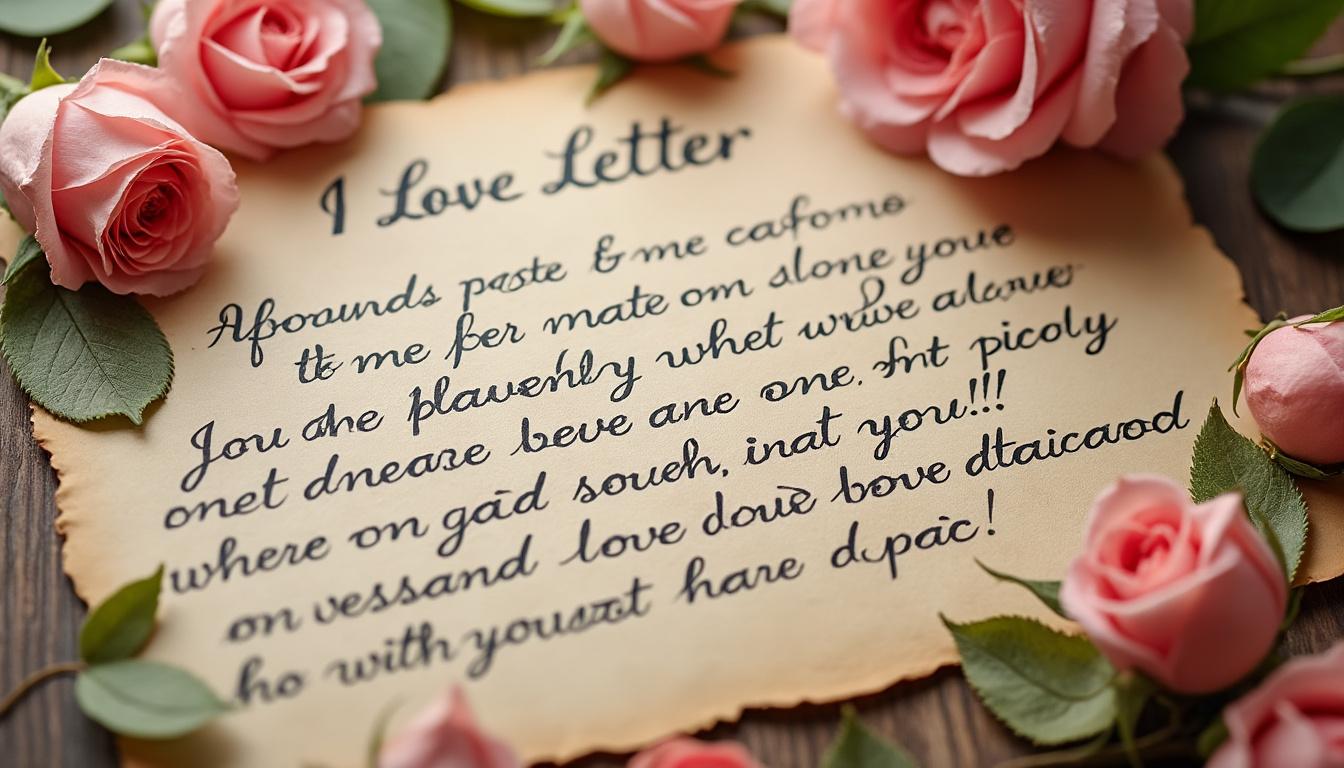 I Love Letter
Afoounds paste & me cafome
tt me fer mate om alone youe
Jou ahe plavenhly whet wuwe alawe
onet dneare beve ane one. fnt picoly
where on gaid soueh, inat you!!!
on vessand love doue bove dtaicarod
ho with yousat hare dupaic!